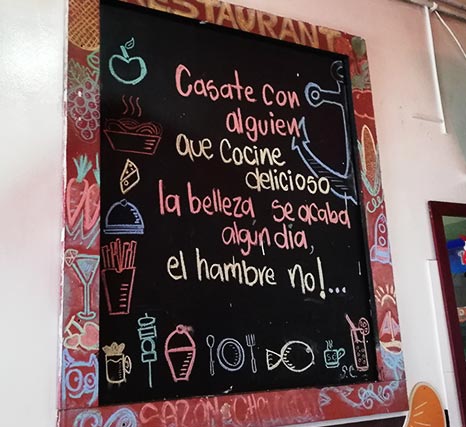 RESTAURANT
Casate con
alguien
que cocine
delicioso
la belleza se acaba
algún dia,
el hambre no!...